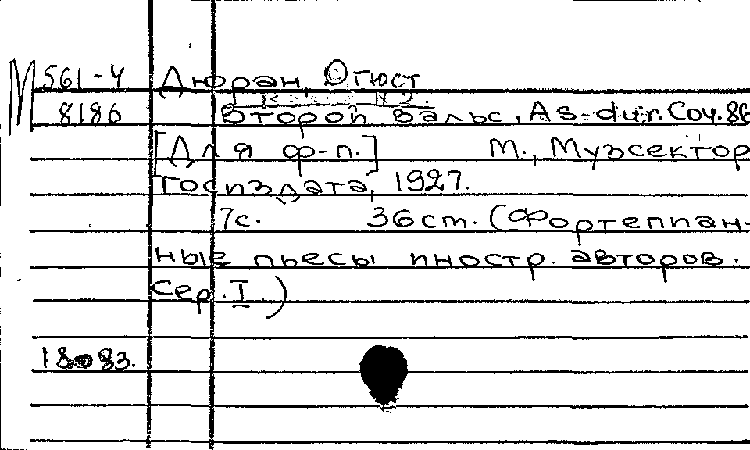 М 561-4 Дюран, Огюст
8186 Второй вальс, As-dur. Соч. 86
[Для ф-п.] М., Музсектор
Госиздата, 1927.
7с. 36cm. (Фортепиан-
ные пьесы иностр. авторов.
Сер. I.)
83.